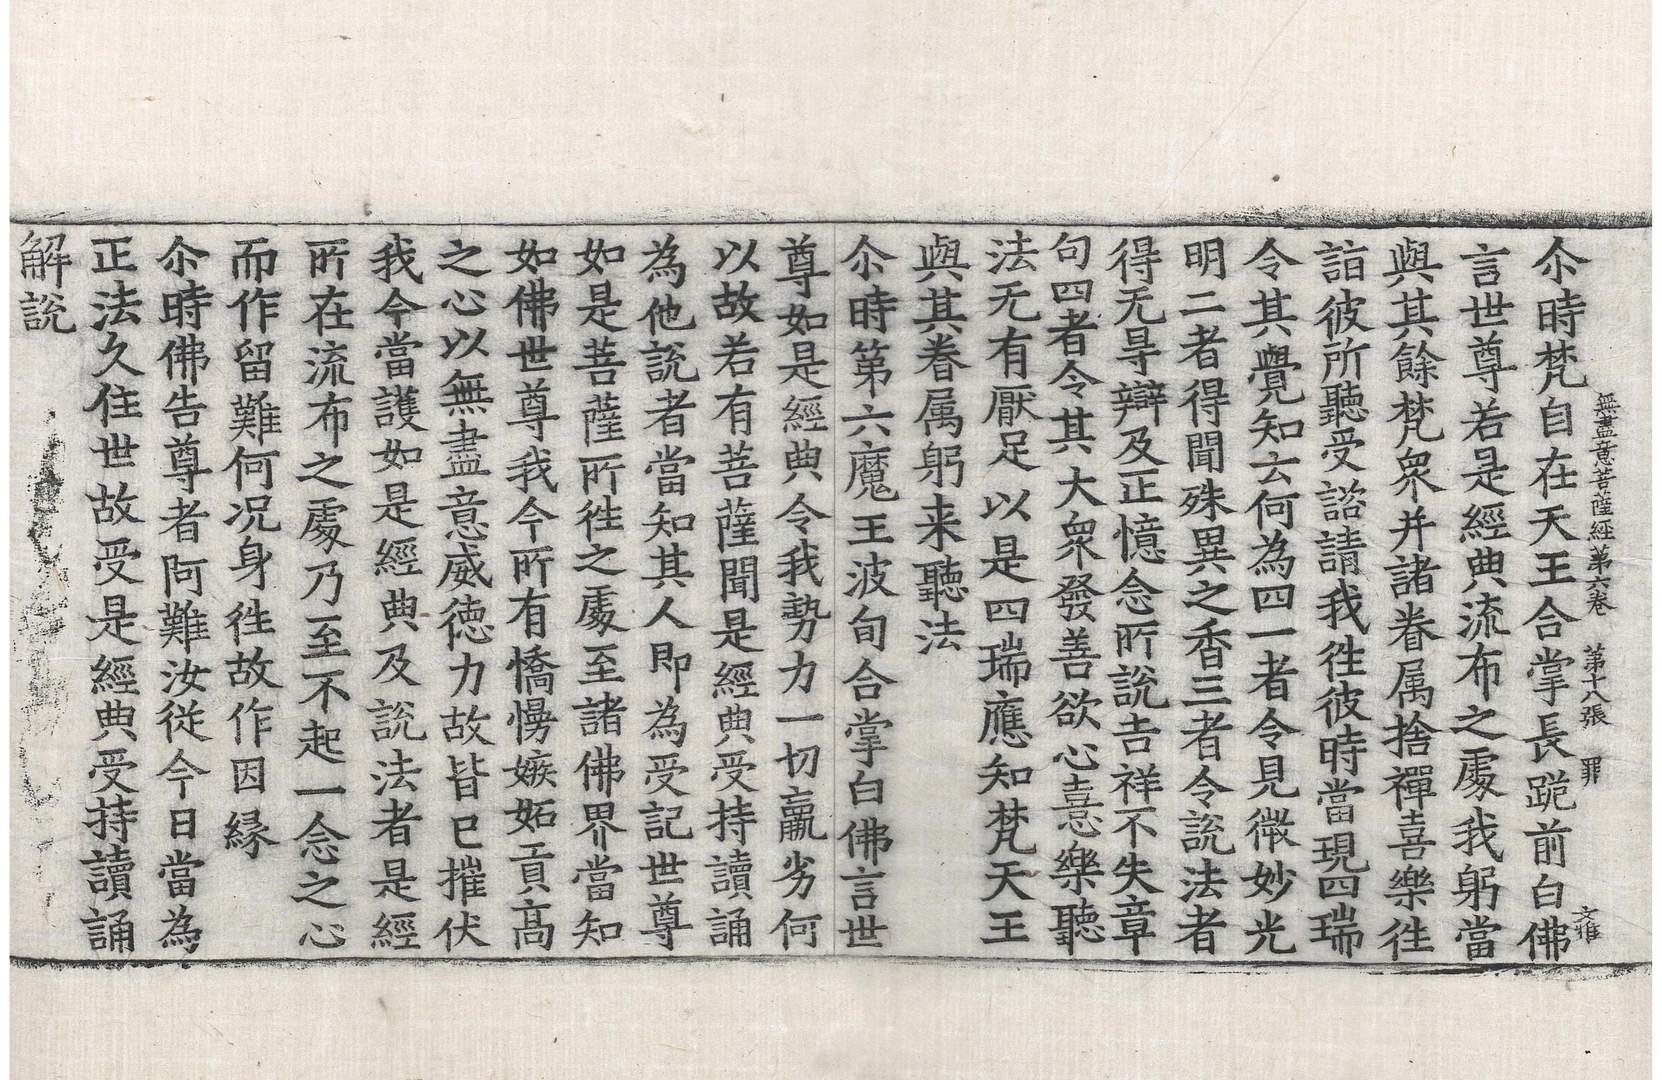 無盡意菩薩經第六卷　第十八張　罪　文惟
尒時梵自在天王合掌長跪前白佛
言世尊若是經典流布之處我躬當
與其餘梵衆并諸眷属捨禪喜樂徃
詣彼所聽受諮請我徃彼時當現四瑞
令其覺知云何為四一者令見微妙光
明二者得聞殊異之香三者令說法者
得无㝵辯及正憶念所說吉祥不失章
句四者令其大衆發善欲心憙樂聽
法无有厭足以是四瑞應知梵天王
與其眷属躬来聽法
尒時第六魔王波旬合掌白佛言世
尊如是經典令我勢力一切羸劣何
以故若有菩薩聞是經典受持讀誦
為他說者當知其人即為受記世尊
如是菩薩所徃之處至諸佛界當知
如佛世尊我今所有憍慢嫉妬貢高
之心以無盡意威徳力故皆已摧伏
我今當護如是經典及說法者是經
所在流布之處乃至不起一念之心
而作留難何况身徃故作因縁
尒時佛告尊者阿難汝從今日當為
正法久住世故受是經典受持讀誦
解說